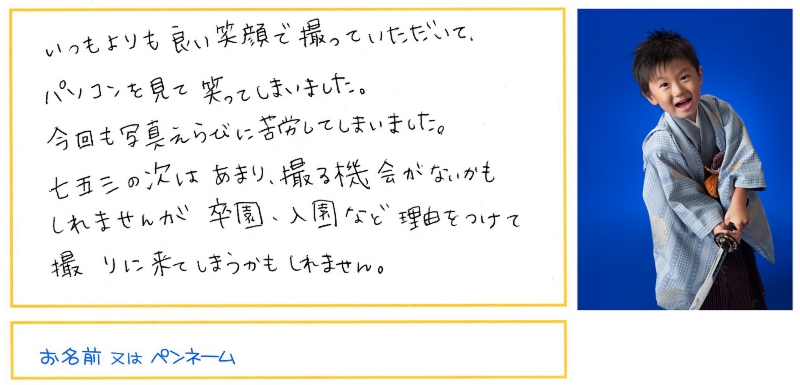 いつもよりも良い笑顔で撮っていただいて、
パソコンを見て笑ってしまいました。
今回も写真えらびに苦労してしまいました。
七五三の次はあまり、撮る機会がないかも
しれませんが卒園、入園など理由をつけて
撮りに来てしまうかもしれません。
お名前又はペンネーム